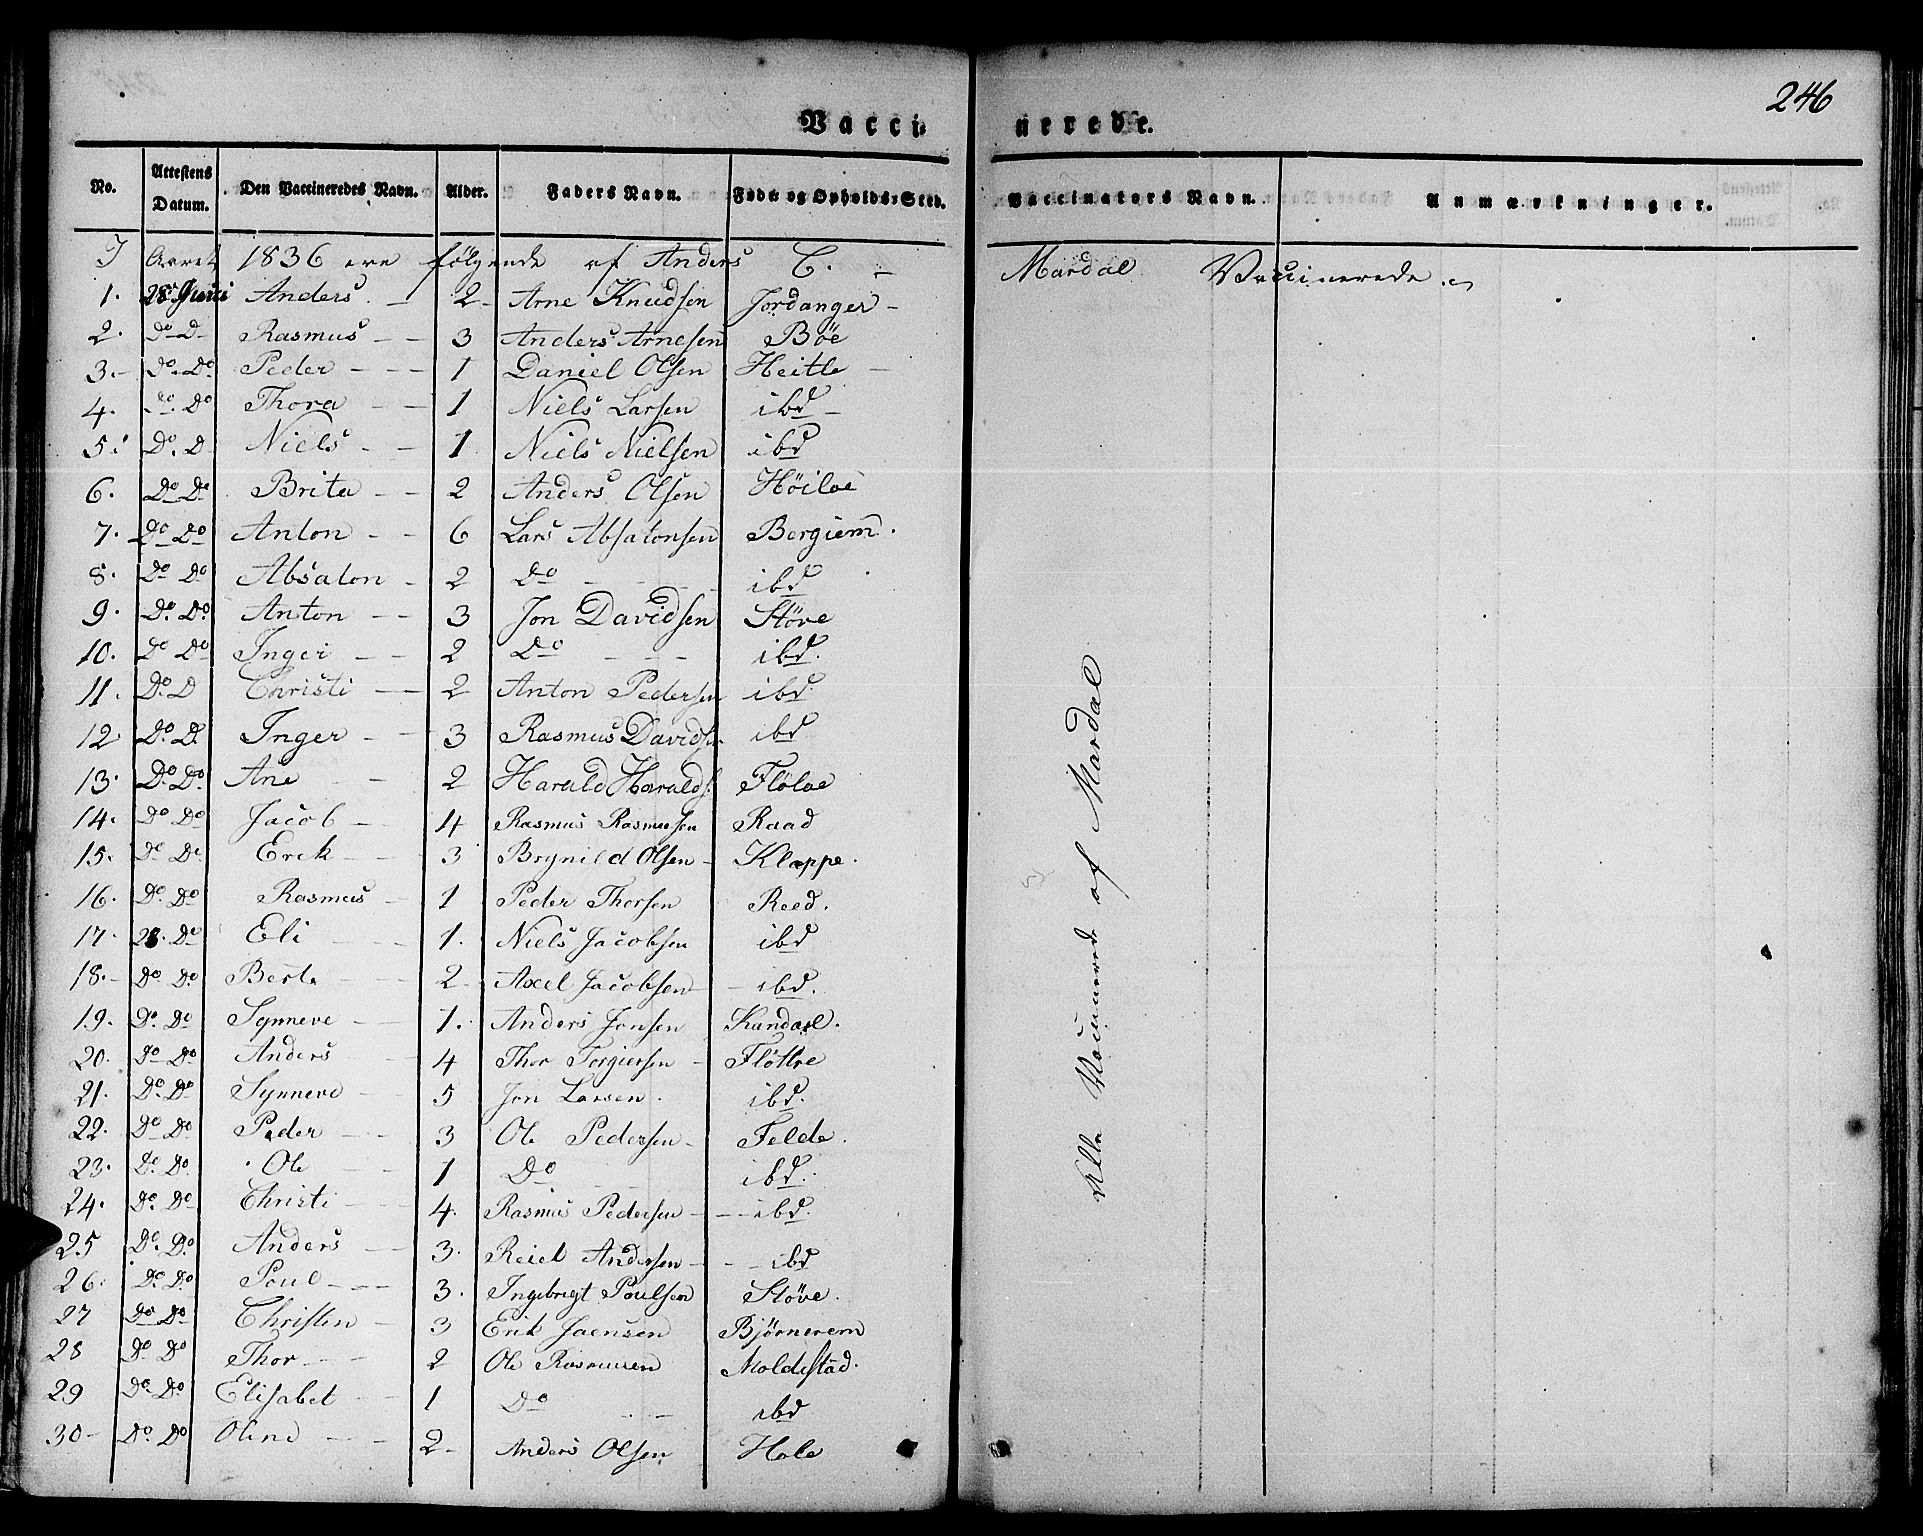 246
Vaccinerede.
No. Attestens Datum. Den Vaccineredes Navn. Alder. Faders Navn. Føde og Opholds-Sted. Vaccinators Navn. Anmærkninger.
I Aaret 1836 ere følgende af Anders C. Mardal Vaccinerede.
1. 28 Juni Anders. 2 Arne Knudsen Jordanger
2. Do D Rasmus 3 Anders Arnesen Böe
3. Do. Do Peder 1 Daniel Olsen Heitle
4. Do. Do Thora 1 Niels Larsen ibd
5. Do. D Niels 1. Niels Nielsen ibd
6. Do Do Brita 2 Anders Olsen
7. Do Do Anton 6 Lars Absalonsen Bergiem.
8. Do Do Absalon 2 Do ibd
9. Do. Do Anton 3 Jon Davidsen Støve
10. Do Do Inger 2 Do ibd.
11. Do. D Christi 2 Anton Pedersen ibd.
12. Do. D. Inger 3 Rasmus Davids. ibd
13. Do Do. Ane 2 Harald Haralds.
14. Do Do Jacob 4 Rasmus Rasmusen Raad
15. Do Do. Erek 3 Brynild Olsen Kleppe.
16. Do. Do Rasmus 1 Peder Thorsen Reed.
17. 28. Do Eli 1. Niels Jacobsen ibd
18. Do Do. 2 Axel Jacobsen ibd.
19. Do. Do Synneve 1. Anders Jonsen
20. Do Do Anders 4 Thor Torgiersen Fløttre
21. Do. Do Synneve 5 Jon Larsen. ibd.
22. Do Do Peder 3 Ole Pedersen Felde.
23. Do. Do. Ole 1 Do ibd.
24. Do. Do Christi 4. Rasmus Pedersen ibd.
25 Do. Do Anders 3. Andersen ibd
26. Do. Do Poul 3. Ingebrigt Poulsen Støve.
27 Do Do Christen 3 Erik Bjørnerem
28 Do Do Thor 2 Ole Rasmusen Moldestad.
29 Do. Do. Elisabet 1 Do ibd
30 Do. Do Oline 2 Anders Olsen Hole
Alle Vaccinerede af Mardal